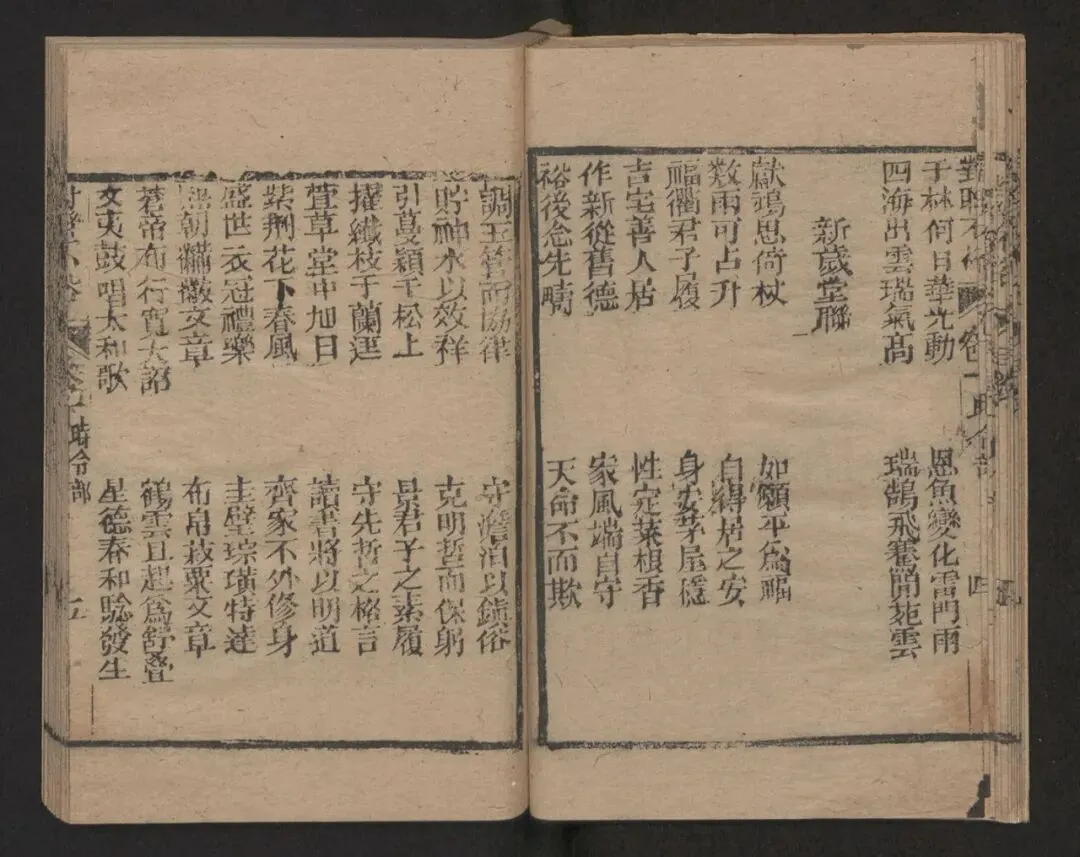 對聯不俗 卷一 時令部 四
于林何日華光動 恩魚變化雷門雨
四海出雲瑞氣高 瑞鵠飛騫閬苑雲
新歲堂聯
獻鳩思倚杖 如願平為福
数雨可占升 自得居之安
福衢君子履 身安茅屋穩
吉宅善人居 性定菜根香
作新從舊德 家風端自守
裕後念先疇 天命不而欺
調玉管而協律 守澹泊以鎮俗
貯神水以效祥 克明哲而保躬
引蔓穎于松上 景君子之素履
擢纖枝于蘭逕 守先哲之格言
萱草堂中旭日 讀書將以明道
紫荆花下春風 齊家不外修身
盛世衣冠禮樂 圭璧琮璜特達
熙朝黼黻文章 布帛菽粟文章
蒼帝布行寬大詔 鶴雲且起為舒疊
文夷鼓唱太和歌 星德春和騐發生
對聯不俗 卷一 時令部 五